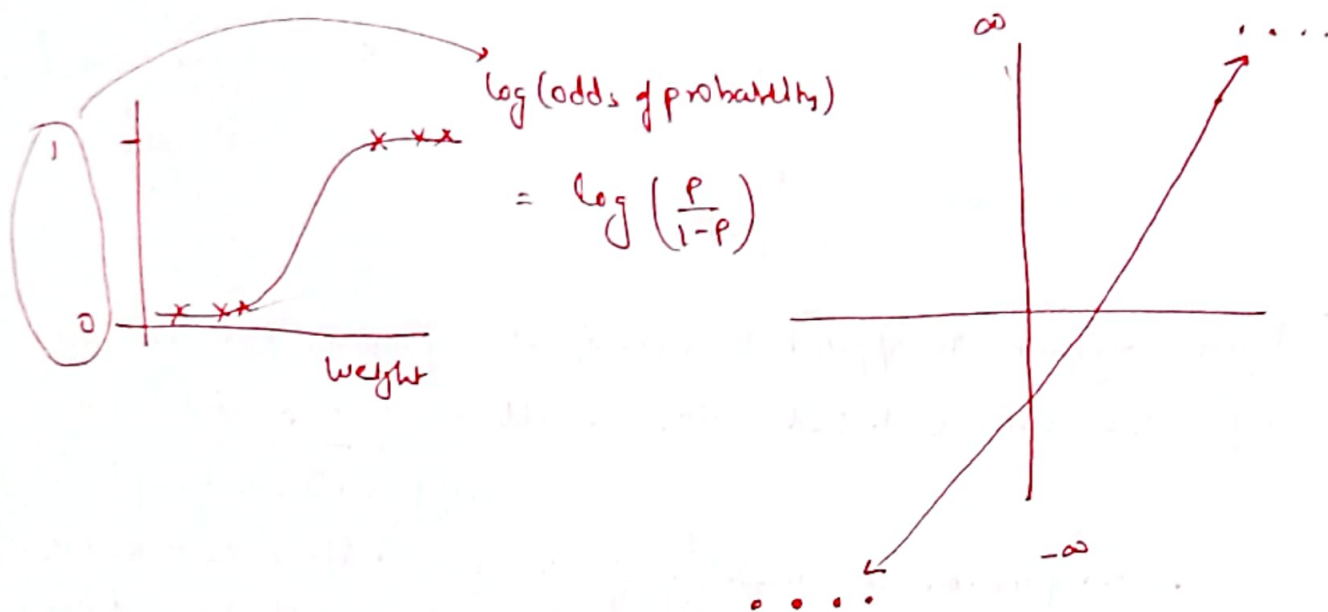 1
0
Weight
log (odds of probability)
= log (P/1-P)
∞
-∞